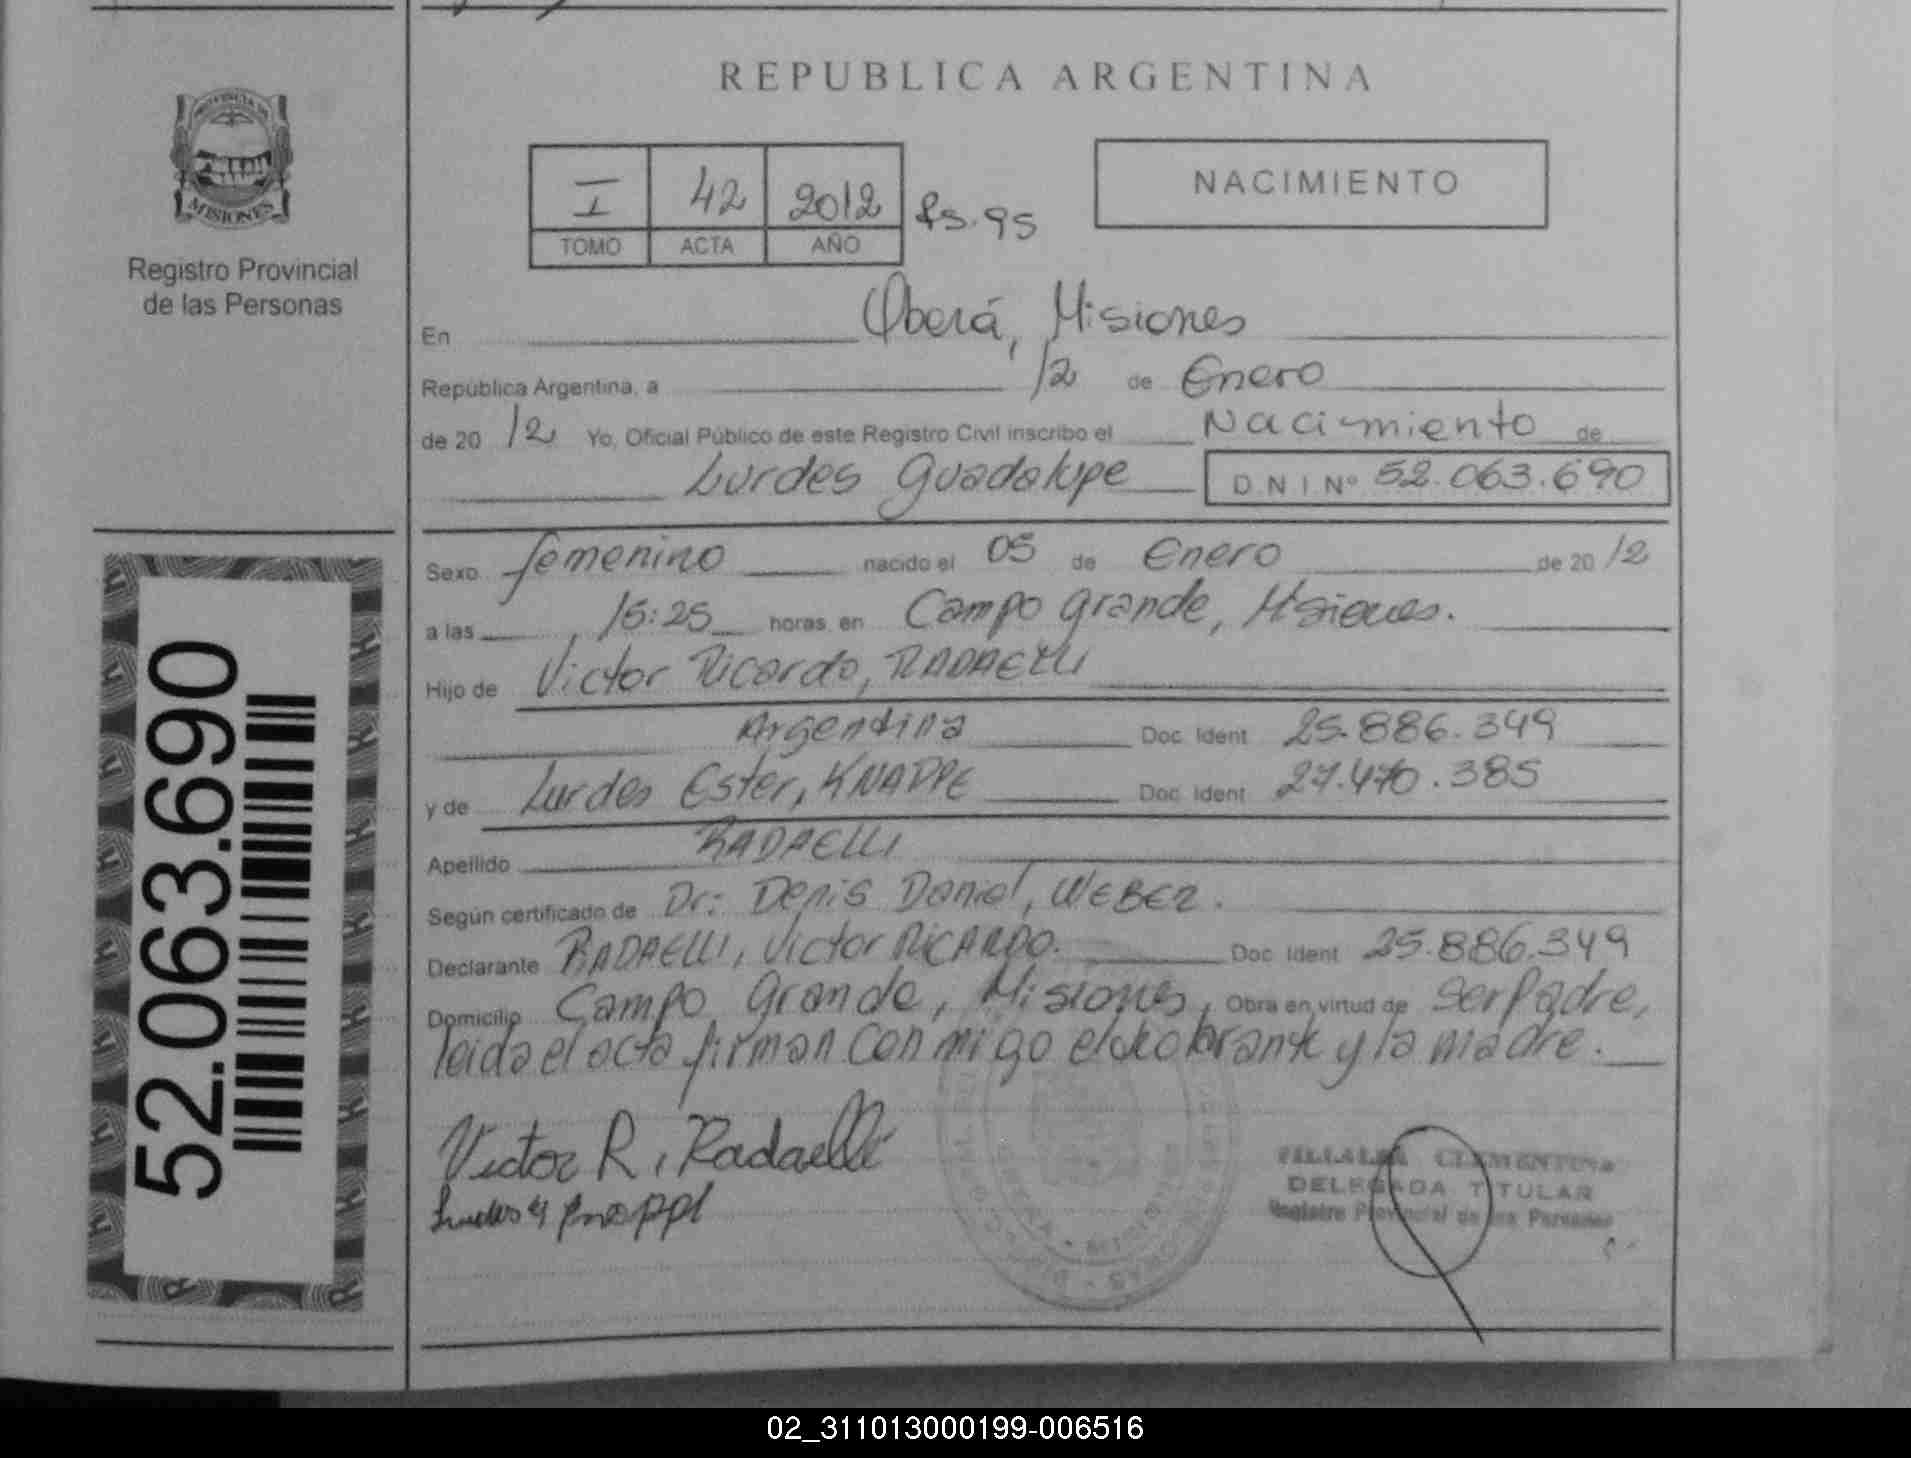 REPUBLICA ARGENTINA
PROVINCIA DE
MISIONES
Registro Provincial
de las Personas
I 42 2012 Fs. 95
TOMO ACTA AÑO
NACIMIENTO
En Oberá, Misiones
República Argentina, a 12 de Enero
de 20 12 Yo, Oficial Público de este Registro Civil inscribo el Nacimiento de
Lurdes Guadalupe D.N.I Nº 52.063.690
Sexo femenino nacido el 05 de Enero de 20 12
a las 15:25 horas, en Campo Grande, Misiones.
Hijo de Victor Ricardo, RADAELLI
Argentina Doc. Ident 25.886.349
y de Lurdes Ester, KNAPPE Doc. Ident 27.470.385
Apellido RADAELLI
Según certificado de Dr: Denis Daniel, WEBER.
Declarante RADAELLI, Victor RICARDO. Doc. Ident 25.886.349
Domicilio Campo Grande, Misiones, Obra en virtud de ser Padre,
leida el acta firman con migo el declarante y la madre.
Victor R. Radaelli
CLEMENTINA
DELEGADA TITULAR
Registro Provincial de las Personas
52.063.690
02_311013000199-006516